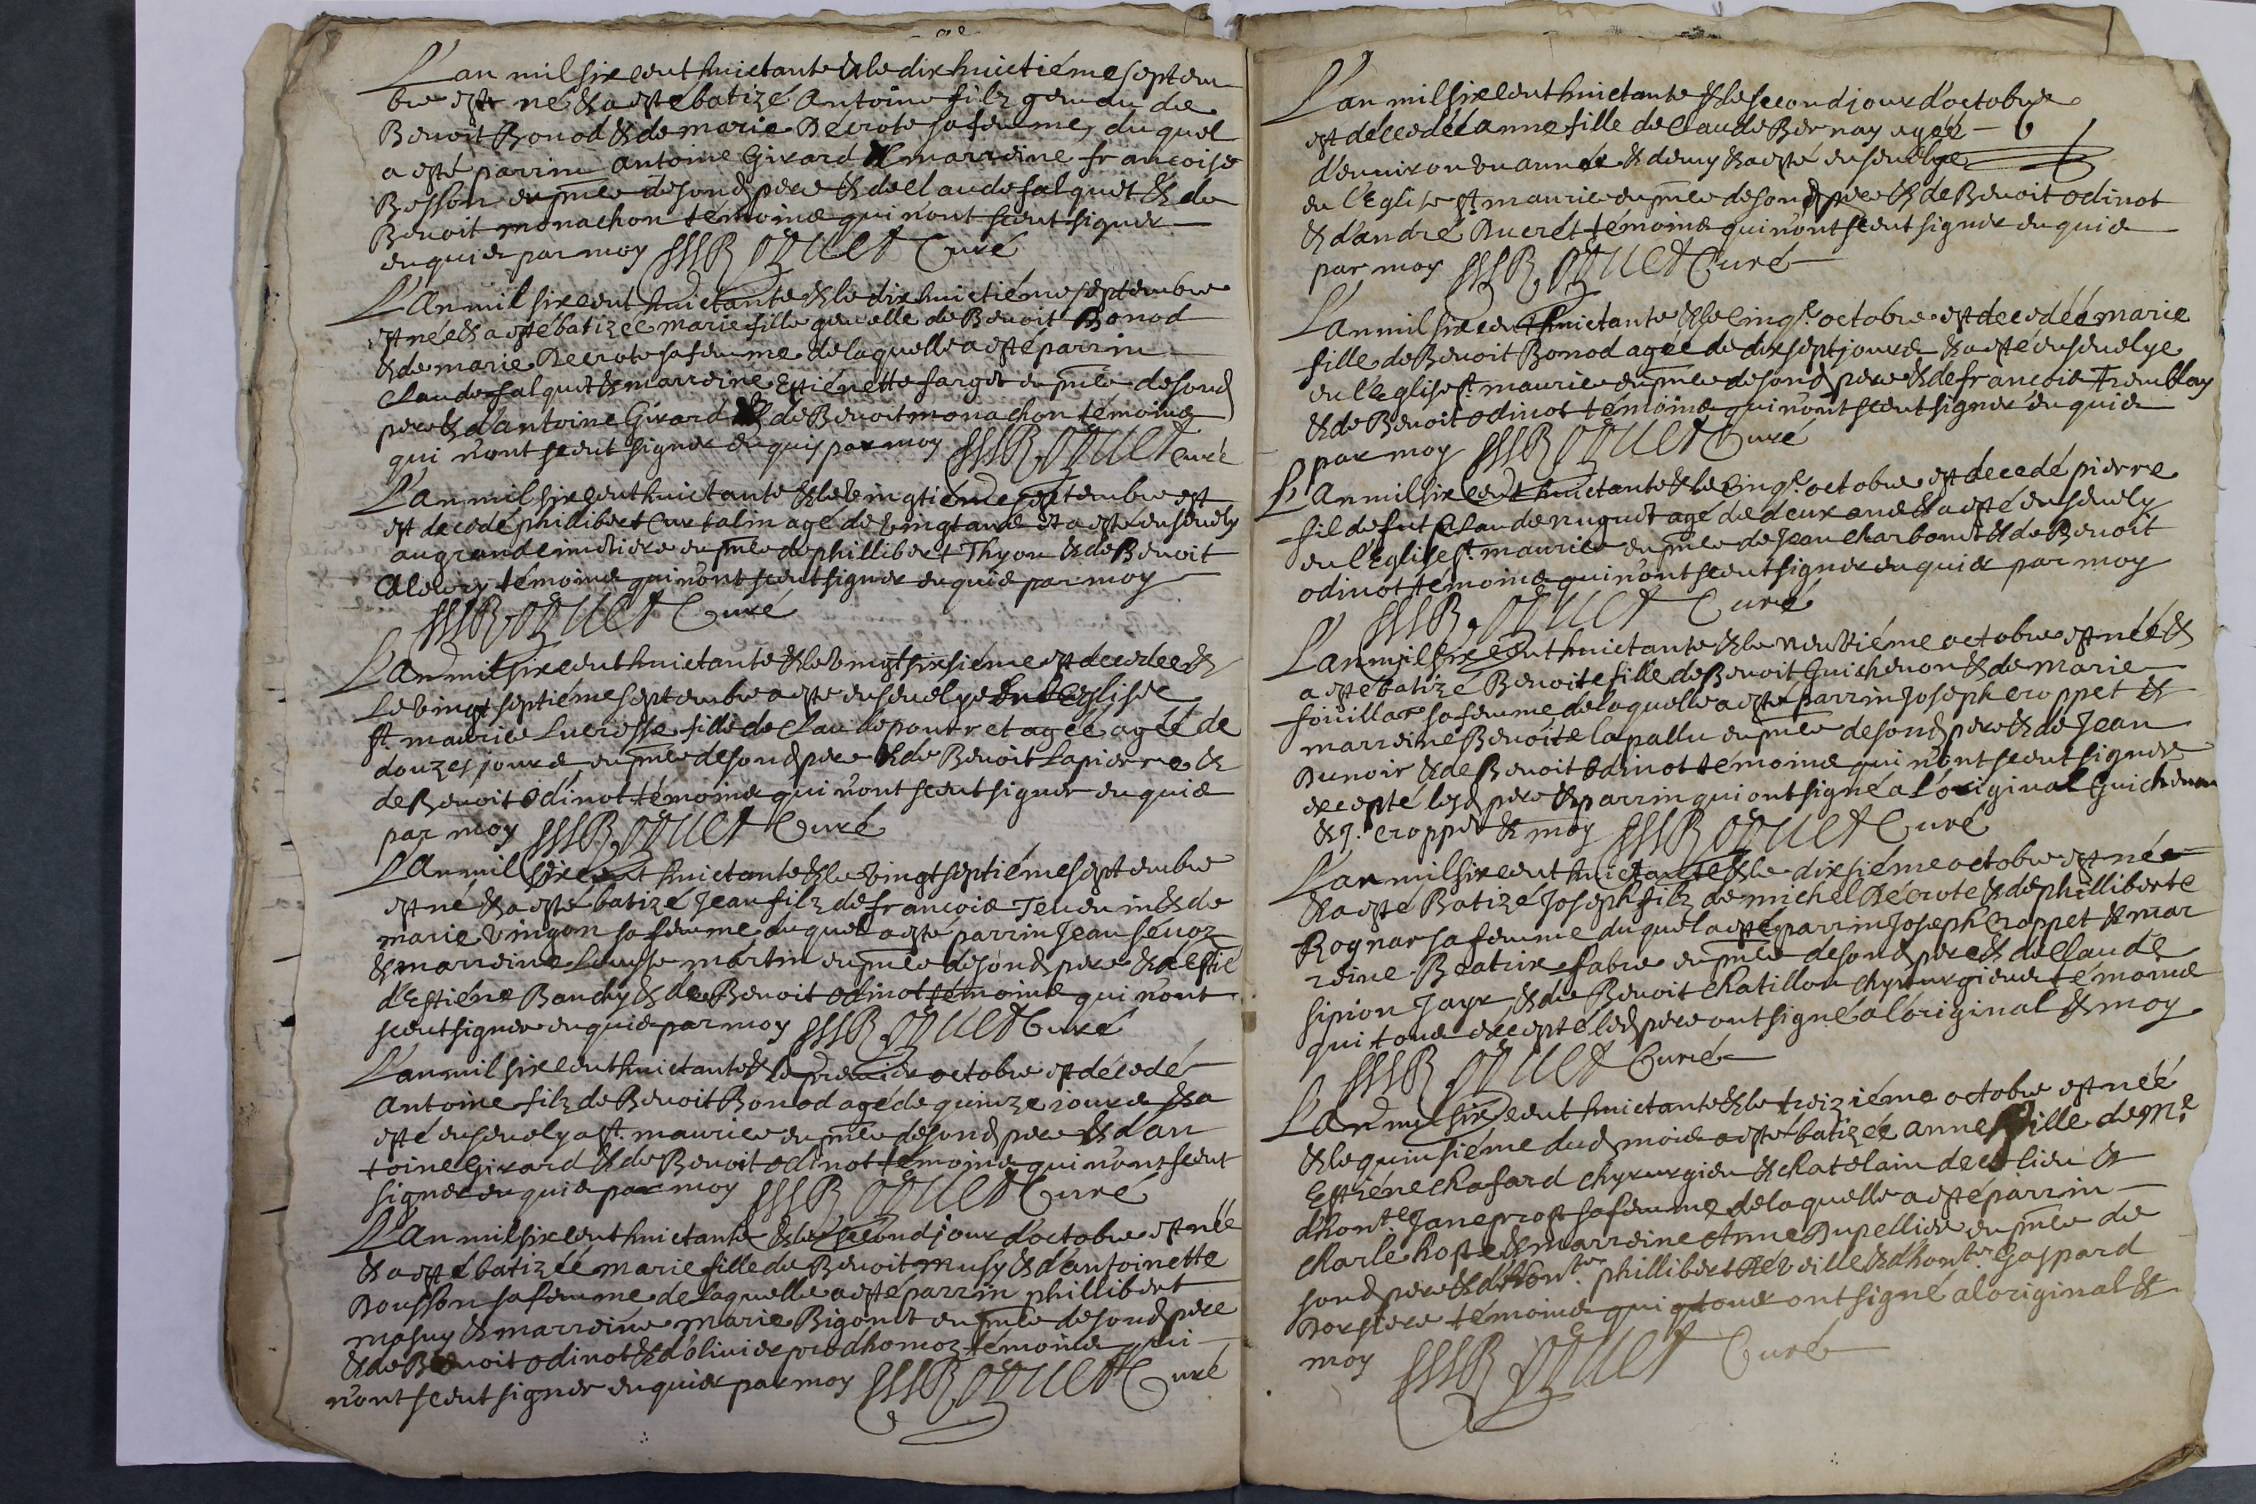 L'an mil six cent huictante & le dix huictiéme septem
bre est né & a esté batizé Antoine filz gemeau de
Benoit Bonod & de marie Décrote sa femme, du quel
a esté parrin antoine Girard & marreine françoise
Besson en pnce de sond pere & de Claude falquet & de
Benoit monachon témoins qui n'ont sceut signer
enquis par moy Roquet Curé
L'An mil six cent huictante & le dix huictiéme septembre
est née & a esté batizée marie fille gemelle de Benoit Bonod
& de marie Decrote sa femme de laquelle a esté parrin
Claude falquet & marreine Estiénette farget en pnce de sond
pere & d'antoine Girard & de Benoit monachon témoins
qui n'ont sceut signer enquis par moy Roquet Curé
L'an mil six cent huictante & le vingtiéme septembre est
est decedé phillibert Curtalin agé de vingt ans & a esté ensevely
au grand cimetiere en pnce de phillibert Thyon & de Benoit
témoins qui n'ont sceut signer enquis par moy
Roquet Curé
L'An mil six cent huictante & le vingt sixsiéme est decedee &
Le vingt septiéme septembre a esté ensevelye en l'Eglise
st maurice Lucresse fille de Claude pontret agée agée de
douzes jours en pnce de sond pere & de Benoit Lapierre &
de Benoit Odinot témoins qui n'ont sceut signer enquis
par moy Roquet Curé
L'An mil six cent huictante & le vingt septiéme septembre
est né & a esté batizé Jean filz de françois Tenenin & de
marie Vingon sa femme duquel a esté parrin Jean Sevoz
& marreine Louyse martin en pnce de sond pere &
d'Estiéne Bandy & de Benoit odinot témoins qui n'ont
sceut signer enquis par moy Roquet Curé
L'an mil six cent huictante & le premier octobre est décedé
Antoine filz de Benoit Bonod agé de quinze jours & a
esté ensevely a st. maurice en pnce de sond pere & d'an
toine Girard & de Benoit odinot témoins qui n'ont sceut
signer enquis par moy Roquet Curé
L'An mil six cent huictante & le second jour d'octobre est née
& a esté batizée marie fille de Benoit musy & d'antoinette
Dousson sa femme de laquelle a esté parrin phillibert
masuy & marreine marie Bigonet en pnce de sond pere
& de Benoit odinot & d'olivier prodhomoz témoins qui
n'ont sceut signer enquis par moy Roquet Curé
L'an mil six cent huictante & le second jour d'octobre
est décedée anne fille de Claude Bernay agéé
d'environ un année & demy & a esté ensevelye
en l'Eglise st. maurice en pnce de sond pere & de Benoit odinot
& d'andré Ducrét témoins qui n'ont sceut signer enquis
par moy Roquet Curé
L'an mil six cent huictante & le cinqe. octobre est decedéé marie
fille de Benoit Bonod agée de dix sept jours & a esté ensevelye
en l'Eglise st. maurice en pnce de sond pere & de francois Tremblay
& de Benoit odinot témoins qui n'ont sceut signer enquis
par moy Roquet Curé
L'An mil six cent huictante & le Cinqe. octobre est decedé pierre
fil de fut Claude nuguet agé de deux ans & a esté ensevely
en l'Eglise st. maurice en pnce de Jean Charbonet & de Benoit
odinot temoins qui n'ont sceut signer enquis par moy
Roquet Curé
L'an mil six cent huictante & le neuviéme octobre est néé &
a esté batizé Benoite fille de Benoit Guichenon & de marie
fouillar sa femme de laquelle a esté parrin Joseph croppet &
marreine Benoite lapallu en pnce de sond pere & de Jean
Dunoir & de Benoit odinot témoins qui n'ont sceut signer
excepté lesd pere & parrin qui ont signé a l'original Guichenon
& J. croppet & moy Roquet Curé
L'an mil six cent huictante & le dixsiéme octobre est née
& a esté Batizé Joseph filz de michel Décrote & de philliberte
Rognar sa femme duquel a esté parrin Joseph Croppet & mar
reine Beatrix fabre en pnce de sond pere & de Claude
sipion Jayr & de Benoit Chatillon chyrurgiens témoins
qui tous excepté led pere ont signé a l'original & moy
Roquet Curé
L'An mil six cent huictante & le treiziéme octobre est néé
& le quinsiéme dud mois a esté batizéé anne fille de Me.
Estiéne Chafard chyrurgien & chatelain de ce lieu &
d'honte Jane prost sa femme de laquelle a esté parrin
Charle hoste & marreine Anne Dupellier en pnce de
sond pere & d'honte. phillibert Réveille & d'honte. Gaspard
Dorsiere témoins qui tous ont signé a l'original &
moy Roquet Curé